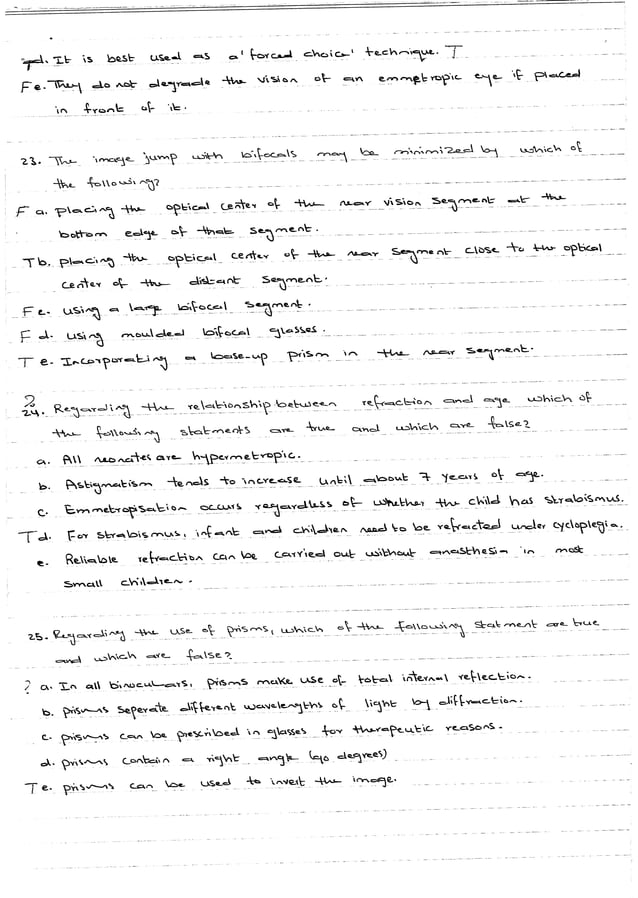 d. It is best used as a 'forced choice' technique. T
F e. They do not degrade the vision of an emmetropic eye if placed
in front of it.
23. The image jump with bifocals may be minimized by which of
the following?
F a. placing the optical center of the near vision segment at the
bottom edge of that segment.
T b. placing the optical center of the near segment close to the optical
center of the distant segment.
F c. using a large bifocal segment.
F d. using moulded bifocal glasses.
T e. Incorporating a base-up prism in the near segment.
?
24. Regarding the relationship between refraction and age which of
the following statments are true and which are false?
a. All neonates are hypermetropic.
b. Astigmatism tends to increase until about 7 years of age.
c. Emmetropisation occurs regardless of whether the child has strabismus.
T d. For strabismus, infant and children need to be refracted under cycloplegia.
e. Reliable refraction can be carried out without anasthesia in most
small children.
25. Regarding the use of prisms, which of the following statment are true
and which are false?
? a. In all binoculars, prisms make use of total internal reflection.
b. prisms seperate different wavelengths of light by diffraction.
c. prisms can be prescribed in glasses for therapeutic reasons.
d. prisms contain a right angle (90 degrees)
T e. prisms can be used to invert the image.